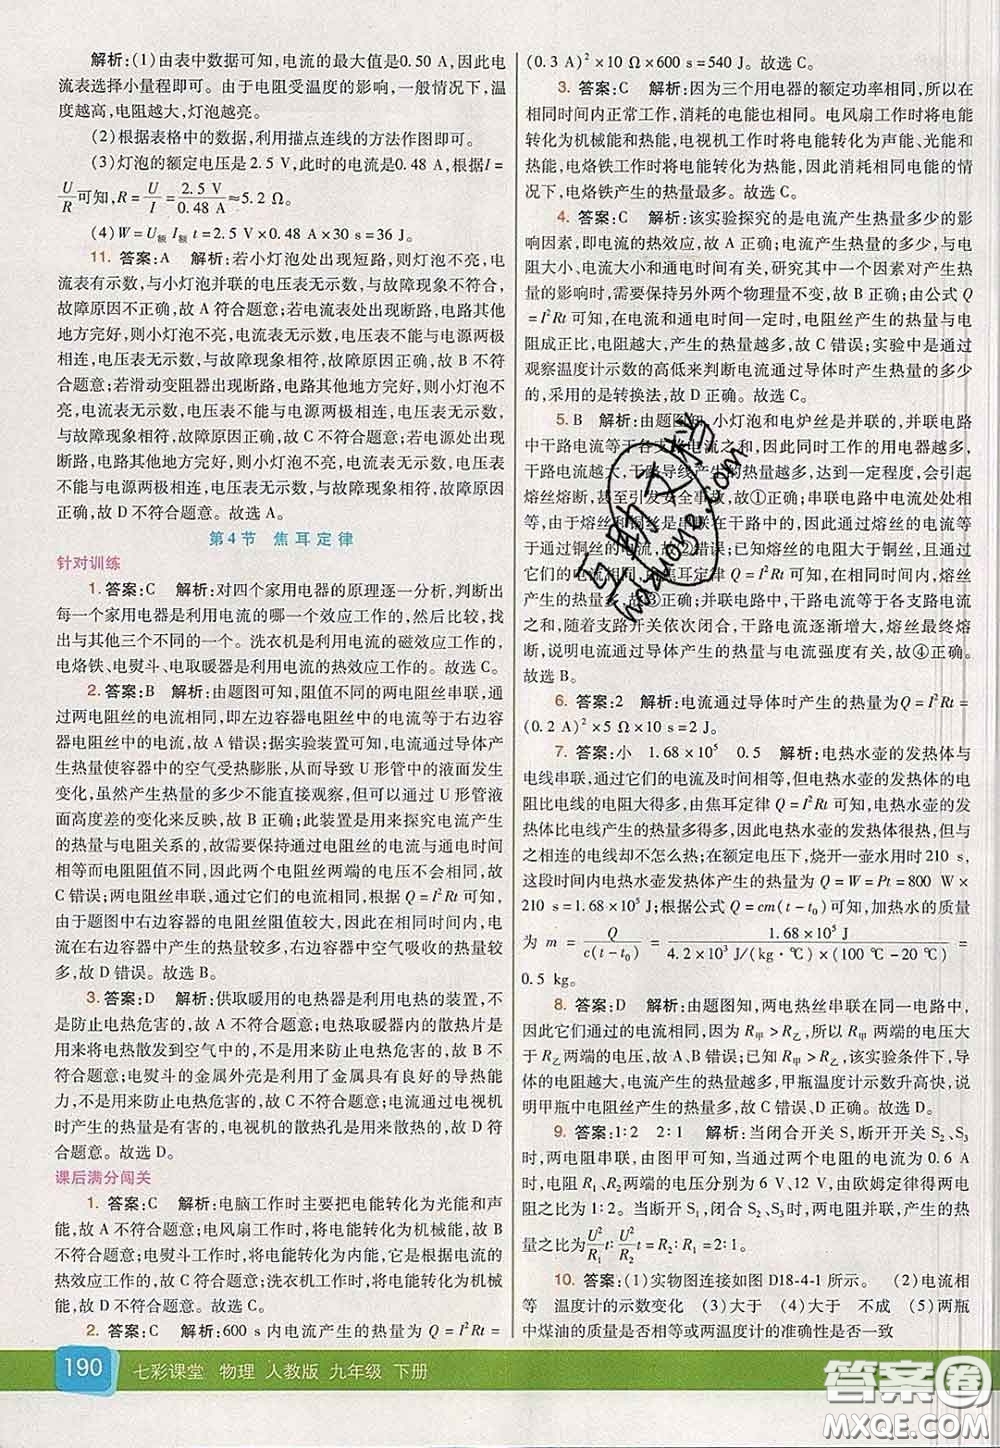 解析:(1)由表中数据可知,电流的最大值是0.50 A,因此电
流表选择小量程即可。由于电阻受温度的影响,一般情况下,温度
越高,电阻越大,灯泡越亮。
(2)根据表格中的数据,利用描点连线的方法作图即可。
(3)灯泡的额定电压是2.5 V,此时的电流是0.48 A,根据I=
U/R可知,R=U/I=2.5 V/0.48 A≈5.2 Ω。
(4)W=U额 I额 t=2.5 V×0.48 A×30 s=36 J。
11. 答案:A 解析:若小灯泡处出现短路,则灯泡不亮,电
流表有示数,与小灯泡并联的电压表无示数,与故障现象符合,
故障原因正确,故 A 符合题意;若电流表处出现断路,电路其他
地方完好,则小灯泡不亮,电流表无示数,电压表不能与电源两极
相连,电压表无示数,与故障现象相符,故障原因正确,故 B 不符
合题意;若滑动变阻器出现断路,电路其他地方完好,则小灯泡不
亮,电流表无示数,电压表不能与电源两极相连,电压表无示数,
与故障现象相符,故障原因正确,故 C 不符合题意;若开关处出现
断路,电路其他地方完好,则小灯泡不亮,电流表无示数,电压表
不能与电源两极相连,电压表无示数,与故障现象相符,故障原因
正确,故 D 不符合题意。故选 A。
第4节 焦耳定律
针对训练
1. 答案:C 解析:对四个家用电器的原理逐一分析,判断出
每一个家用电器是利用电流的哪一个效应工作的,然后比较,找
出与其它三个不同的一个。洗衣机是利用电流的磁效应工作的,
电烙铁、电熨斗、电取暖器是利用电流的热效应工作的。故选 C。
2. 答案:B 解析:由题图可知,阻值不同的两电阻丝串联,通
过两电阻丝的电流相同,即左边容器电阻丝中的电流等于右边容
器电阻丝中的电流,故 A 错误;据实验装置可知,电流通过导体产
生热量使容器中的空气受热膨胀,从而导致 U 形管中的液面发生
变化,虽然产生热量的多少不能直接观察,但可以通过 U 形管液
面高度差的变化来反映,故 B 正确;此装置是用来探究电流产生
的热量与电阻关系的,需要控制通过导体的电流与通电时间相
同而导体的电阻不同,因此两个电阻丝两端的电压不会相同,故
C 错误;两电阻丝串联,通过它们的电流相同,根据 Q=I²Rt 可知,
由于题图中右边容器的电阻丝阻值较大,故在相同时间内,电
流在右边容器中产生的热量较多,右边容器中空气吸收的热量较
多,故 D 错误。故选 B。
3. 答案:D 解析:供取暖用的电热器是利用电热的装置,不
是防止电热危害的,故 A 不符合题意;电热取暖器中的散热片是
用来将电热散发到空气中的,不是防止电热危害的,故 B 不
符合题意;电熨斗的金属外壳是利用了金属具有良好的导热能
力,不是用来防止电热危害的,故 C 不符合题意;电流通过电视机
时产生的热量是有害的,电视机的散热孔是用来散热的,故 D 符
合题意。故选 D。
课后满分闯关
1. 答案:C 解析:电脑工作时主要把电能转化为光能和声
能,故 A 不符合题意;电风扇工作时,将电能转化为机械能,故 B
不符合题意;电熨斗工作时,将电能转化为内能,它是根据电流的
热效应工作的,故 C 符合题意;洗衣机工作时,将电能转化为机械
能,故 D 不符合题意。故选 C。
2. 答案:C 解析:600 s 内电流产生的热量为 Q=I²Rt=
(0.3 A)²×10 Ω×600 s=540 J。故选 C。
3. 答案:C 解析:因为三个用电器的额定功率相同,所以在
相同时间内正常工作,消耗的电能也相同。电风扇工作时将电能
转化为机械能和热能,电视机工作时将电能转化为声能、光能和
热能,电烙铁工作时将电能转化为热能,因此消耗相同电能的情
况下,电烙铁产生的热量最多。故选 C。
4. 答案:C 解析:该实验探究的是电流产生热量多少的影
响因素,即电流的热效应,故 A 正确;电流产生热量的多少,与电
阻大小、电流大小和通电时间有关,研究其中一个因素对产生热
量的影响时,需要保持另外两个物理量不变,故 B 正确;由公式 Q
=I²Rt 可知,在电流和通电时间一定时,电阻丝产生的热量与电
阻成正比,电阻越大,产生的热量越多,故 C 错误;实验中是通过
观察温度计示数的高低来判断电流通过导体时产生热量的多少
的,采用的是转换法,故 D 正确。故选 C。
5. B 解析:由题图知,小灯泡和电炉丝是并联的,并联电路
中干路电流等于各支路电流之和,因此同时工作的用电器越多,
干路电流越大,干路导线产生的热量越多,达到一定程度,会引起
熔丝熔断,甚至引发安全事故,故①正确;串联电路中电流处处相
等,故②错误;已知熔丝的电阻大于铜丝,且通过熔丝的电流和铜丝
的电流相等,由焦耳定律 Q=I²Rt 可知,在相同时间内,熔丝
产生的热量多,故③正确;并联电路中,干路电流等于各支路电流
之和,随着支路开关依次闭合,干路电流逐渐增大,熔丝最终熔
断,说明电流通过导体产生的热量与电流强度有关,故④正确。
故选 B。
6. 答案:2 解析:电流通过导体时产生的热量为 Q=I²Rt=
(0.2 A)²×5 Ω×10 s=2 J。
7. 答案:小 1.68×10⁵ 0.5 解析:电热水壶的发热体与
电线串联,通过它们的电流及时间相等,但电热水壶的发热体的电
阻比电线的电阻大得多,由焦耳定律 Q=I²Rt 可知,电热水壶的发
热体比电线产生的热量多得多,因此电热水壶的发热体很热,但与
之相连的电线却不怎么热;在额定电压下,烧开一壶水用时210 s,
这段时间内电热水壶发热体产生的热量为 Q=W=Pt=800 W×
210 s=1.68×10⁵ J;根据公式 Q=cm(t−t₀)可知,加热水的质量
为 m=Q/c(t−t₀)=1.68×10⁵ J/4.2×10³ J/(kg·℃)×(100 ℃−20 ℃)=
0.5 kg。
8. 答案:D 解析:由题图知,两电热丝串联在同一电路中,
因此它们通过的电流相同。因为 R甲>R乙,所以 R甲 两端的电压大
于 R乙两端的电压,故 A、B 错误;已知 R甲>R乙,该实验条件下,导
体的电阻越大,电流产生的热量越多,甲瓶温度计示数升高快,说
明甲瓶中电阻丝产生的热量多,故 C 错误、D 正确。故选 D。
9. 答案:1∶2 2∶1 解析:当闭合开关 S,断开开关 S₂、S₃
时,两电阻串联,由图甲可知,当电路中的电流为 0.6 A
时,电阻 R₁、R₂两端的电压分别为 6 V、12 V,由欧姆定律得两电
阻之比为 1∶2。当断开 S₁,闭合 S₂、S₃时,两电阻并联,产生的热
量之比为U²/R₁t∶U²/R₂t=R₂∶R₁=2∶1。
10. 答案:(1)实物图连接如图 D18-4-1 所示。 (2)电流相
等 温度计的示数变化 (3)大于 (4)大于 不成 (5)两瓶
中煤油的质量是否相等或两温度计的准确性是否一致
190 七彩课堂 物理 人教版 九年级 下册
互助文档
hdzuoye.com
答案圈
MXQE.COM